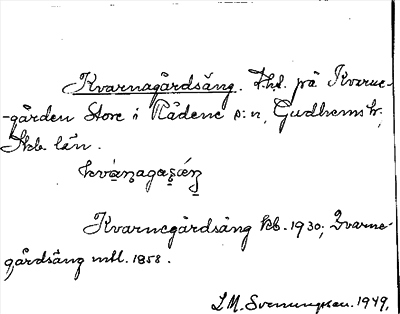 Kvarnagårdsäng. Thd. på Kvarne-
-gården Store i Rådene s:n, Gudhems hr,
Skb. län.
Kvarnegårdsäng kb. 1930; Qvarne-
gårdsäng mtl. 1858.
L.M. Svenungsson. 1949.